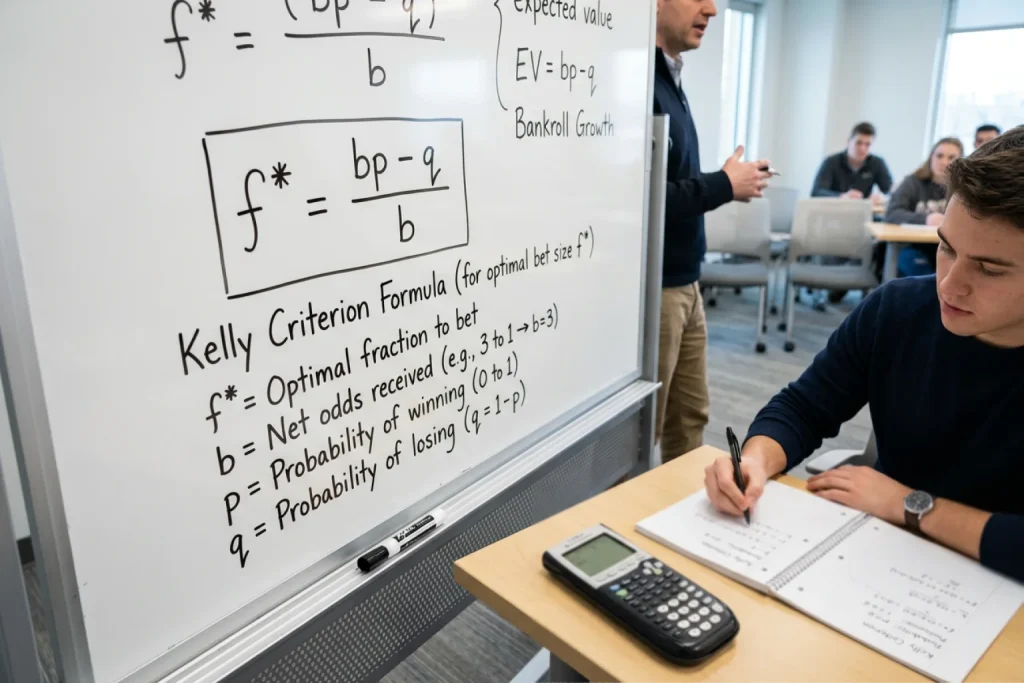 f* = (bp - q) / b
expected value
EV = bp-q
Bankroll Growth
f* = bp - q / b
Kelly Criterion Formula (for optimal bet size f*)
f* = Optimal fraction to bet
b = Net odds received (e.g., 3 to 1 → b=3)
p = Probability of winning (0 to 1)
q = Probability of losing (q = 1-p)